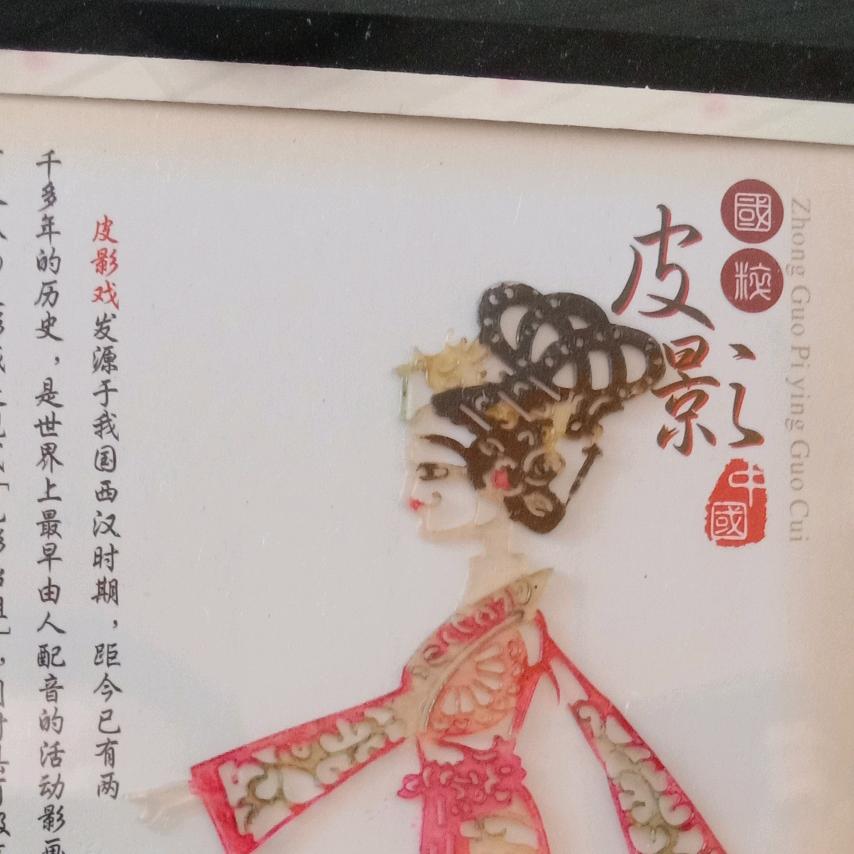 Zhong Guo Pi ying Guo Cui
國粹
皮影
中國
皮影戏发源于我国西汉时期，距今已有两
千多年的历史，是世界上最早由人配音的活动影画